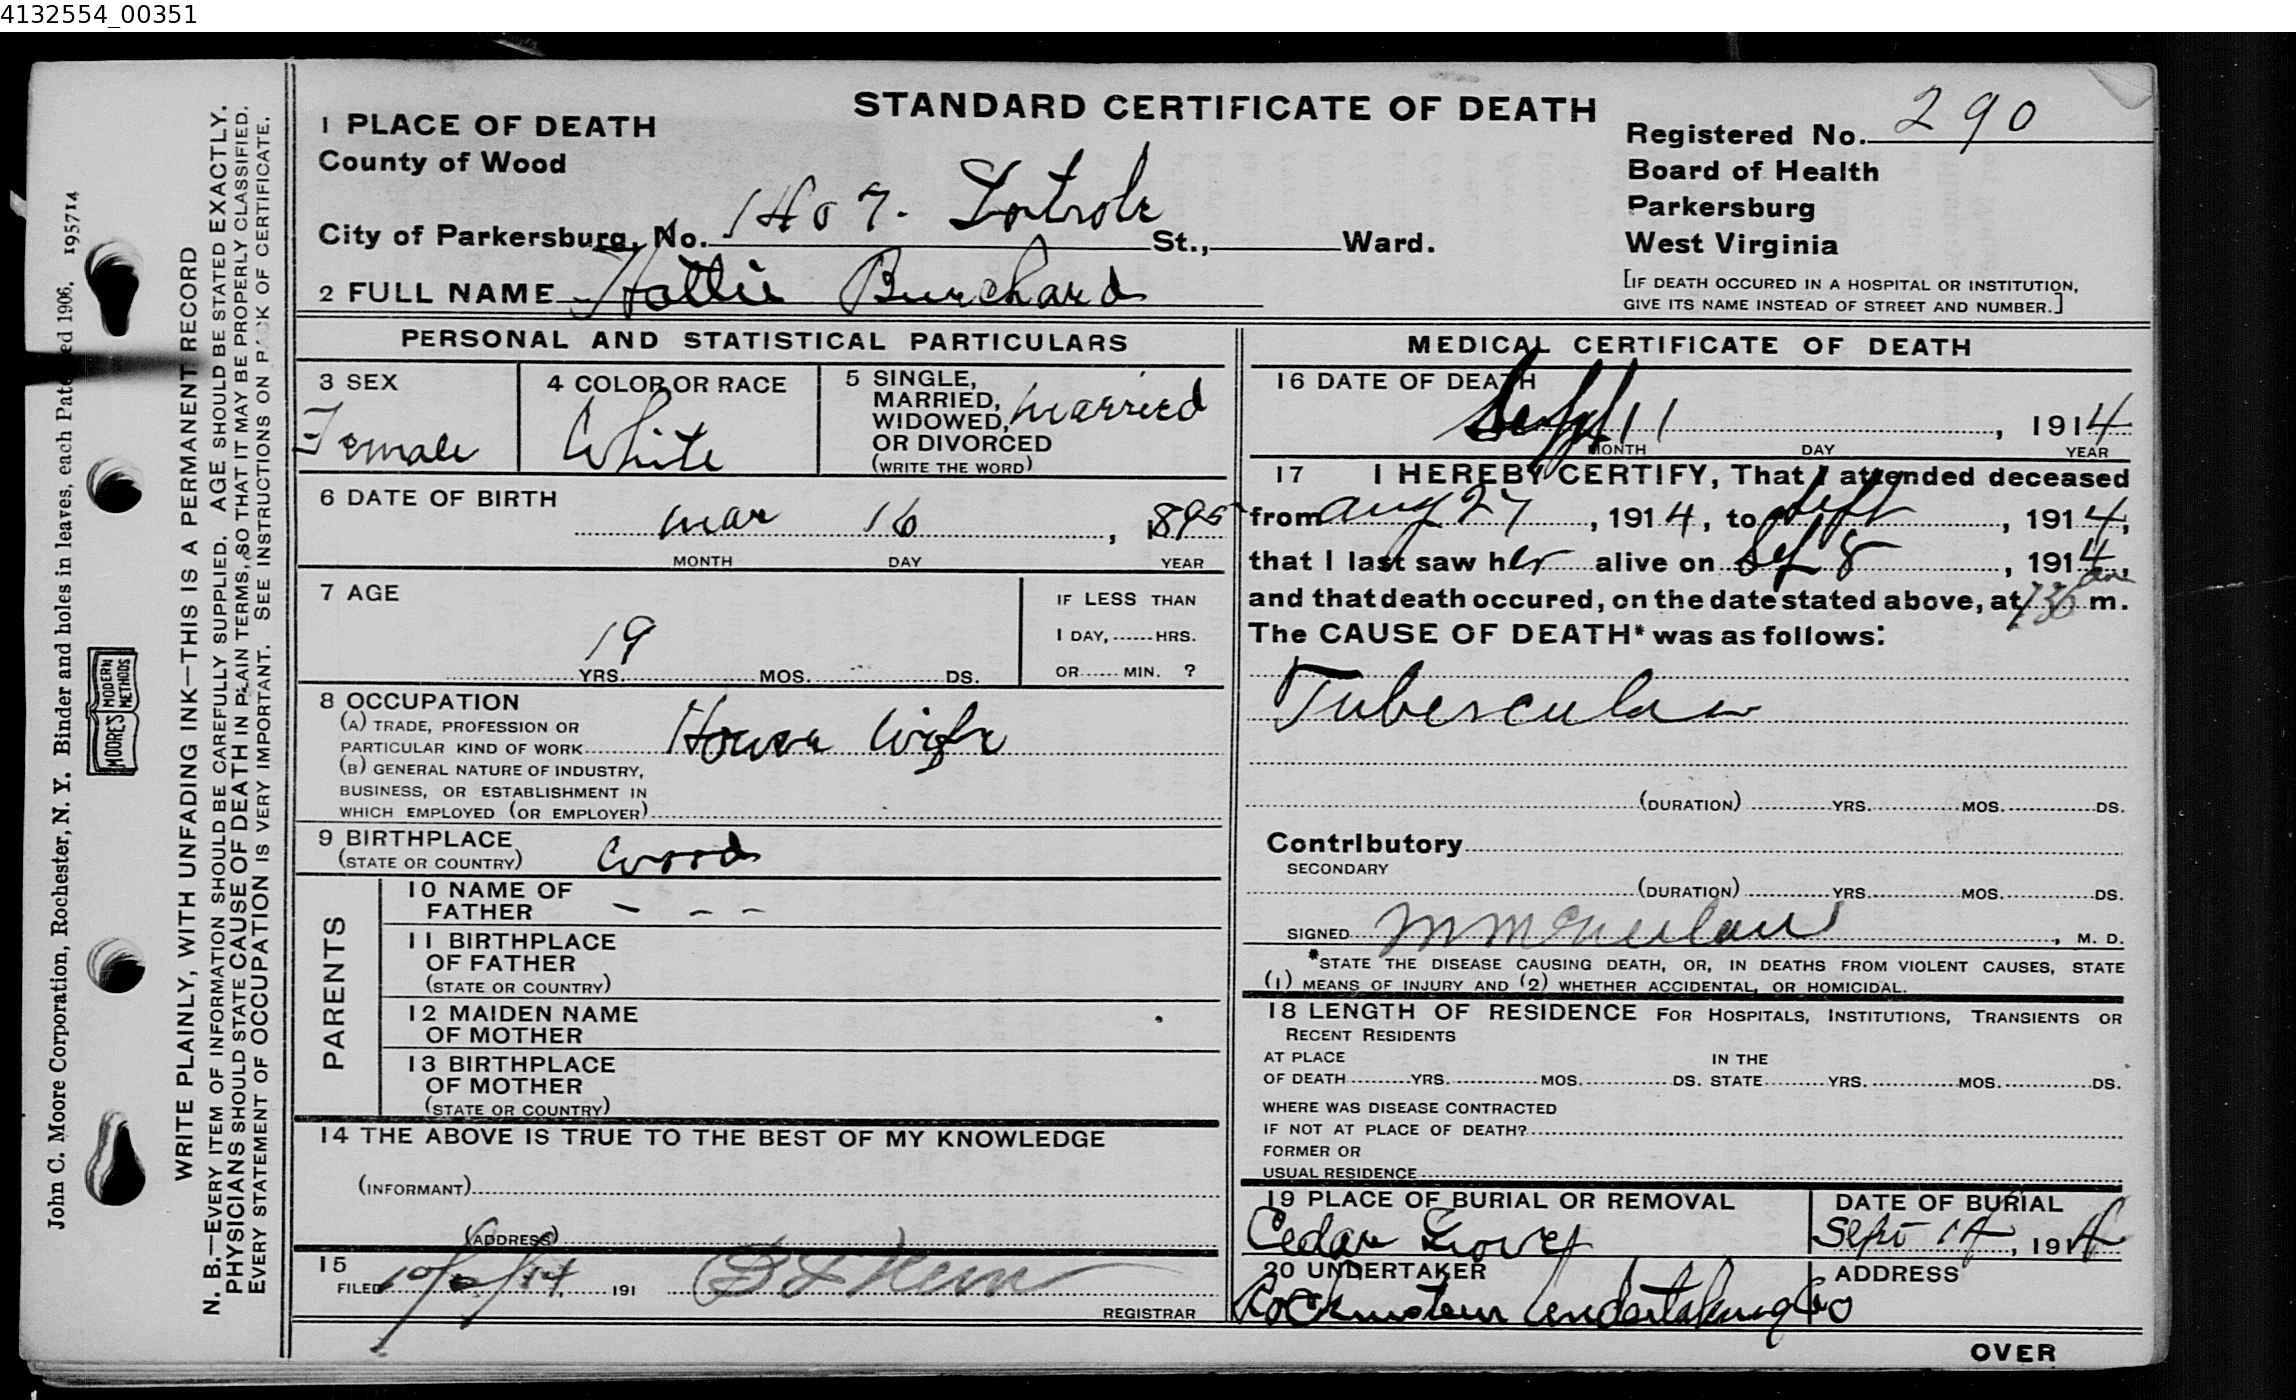 4132554_00351
STANDARD CERTIFICATE OF DEATH
1 PLACE OF DEATH
County of Wood
City of Parkersburg, No. 1407. St., Ward.
2 FULL NAME Hattie Burchard
Registered No. 290
Board of Health
Parkersburg
West Virginia
[IF DEATH OCCURED IN A HOSPITAL OR INSTITUTION,
GIVE ITS NAME INSTEAD OF STREET AND NUMBER.]
PERSONAL AND STATISTICAL PARTICULARS
3 SEX
Female
4 COLOR OR RACE
White
5 SINGLE,
MARRIED,
WIDOWED,
OR DIVORCED
(WRITE THE WORD)
married
6 DATE OF BIRTH
mar 16, 1895
MONTH DAY YEAR
7 AGE
19 YRS. MOS. DS.
IF LESS THAN
1 DAY, HRS.
OR MIN. ?
8 OCCUPATION
(A) TRADE, PROFESSION OR
PARTICULAR KIND OF WORK House Wife
(B) GENERAL NATURE OF INDUSTRY,
BUSINESS, OR ESTABLISHMENT IN
WHICH EMPLOYED (OR EMPLOYER)
9 BIRTHPLACE
(STATE OR COUNTRY) Wood
PARENTS
10 NAME OF
FATHER - - -
11 BIRTHPLACE
OF FATHER
(STATE OR COUNTRY)
12 MAIDEN NAME
OF MOTHER
13 BIRTHPLACE
OF MOTHER
(STATE OR COUNTRY)
14 THE ABOVE IS TRUE TO THE BEST OF MY KNOWLEDGE
(INFORMANT)
(ADDRESS)
15
FILED 191
REGISTRAR
MEDICAL CERTIFICATE OF DEATH
16 DATE OF DEATH
Sept 11, 1914
MONTH DAY YEAR
17 I HEREBY CERTIFY, That I attended deceased
from Aug 27, 1914, to Sept, 1914,
that I last saw her alive on Sep 8, 1914,
and that death occured, on the date stated above, at m.
The CAUSE OF DEATH* was as follows:
Tubercular
(DURATION) YRS. MOS. DS.
Contributory
SECONDARY
(DURATION) YRS. MOS. DS.
SIGNED , M. D.
*STATE THE DISEASE CAUSING DEATH, OR, IN DEATHS FROM VIOLENT CAUSES, STATE
(1) MEANS OF INJURY AND (2) WHETHER ACCIDENTAL, OR HOMICIDAL.
18 LENGTH OF RESIDENCE FOR HOSPITALS, INSTITUTIONS, TRANSIENTS OR
RECENT RESIDENTS
AT PLACE IN THE
OF DEATH YRS. MOS. DS. STATE YRS. MOS. DS.
WHERE WAS DISEASE CONTRACTED
IF NOT AT PLACE OF DEATH?
FORMER OR
USUAL RESIDENCE
19 PLACE OF BURIAL OR REMOVAL
Cedar Grove
DATE OF BURIAL
Sept 14, 1914
20 UNDERTAKER
Undertaking Co
ADDRESS
OVER
WRITE PLAINLY, WITH UNFADING INK—THIS IS A PERMANENT RECORD
N. B.—EVERY ITEM OF INFORMATION SHOULD BE CAREFULLY SUPPLIED. AGE SHOULD BE STATED EXACTLY.
PHYSICIANS SHOULD STATE CAUSE OF DEATH IN PLAIN TERMS, SO THAT IT MAY BE PROPERLY CLASSIFIED.
EVERY STATEMENT OF OCCUPATION IS VERY IMPORTANT. SEE INSTRUCTIONS ON BACK OF CERTIFICATE.
John C. Moore Corporation, Rochester, N. Y. Binder and holes in leaves, each Patented 1906. 195714
MOORE'S MODERN METHODS